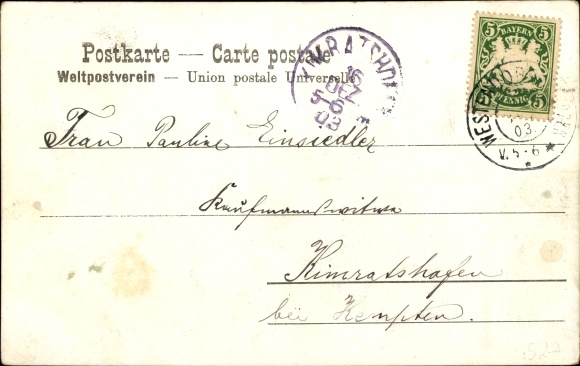 Postkarte — Carte postale
Weltpostverein — Union postale Universelle
5 BAYERN 5
5 PFENNIG 5
16
DEZ
5-6
03
WES
03
V. 5-6
Frau Pauline Einsiedler
Kaufmannswitwe
Kimratshofen
bei Kempten.